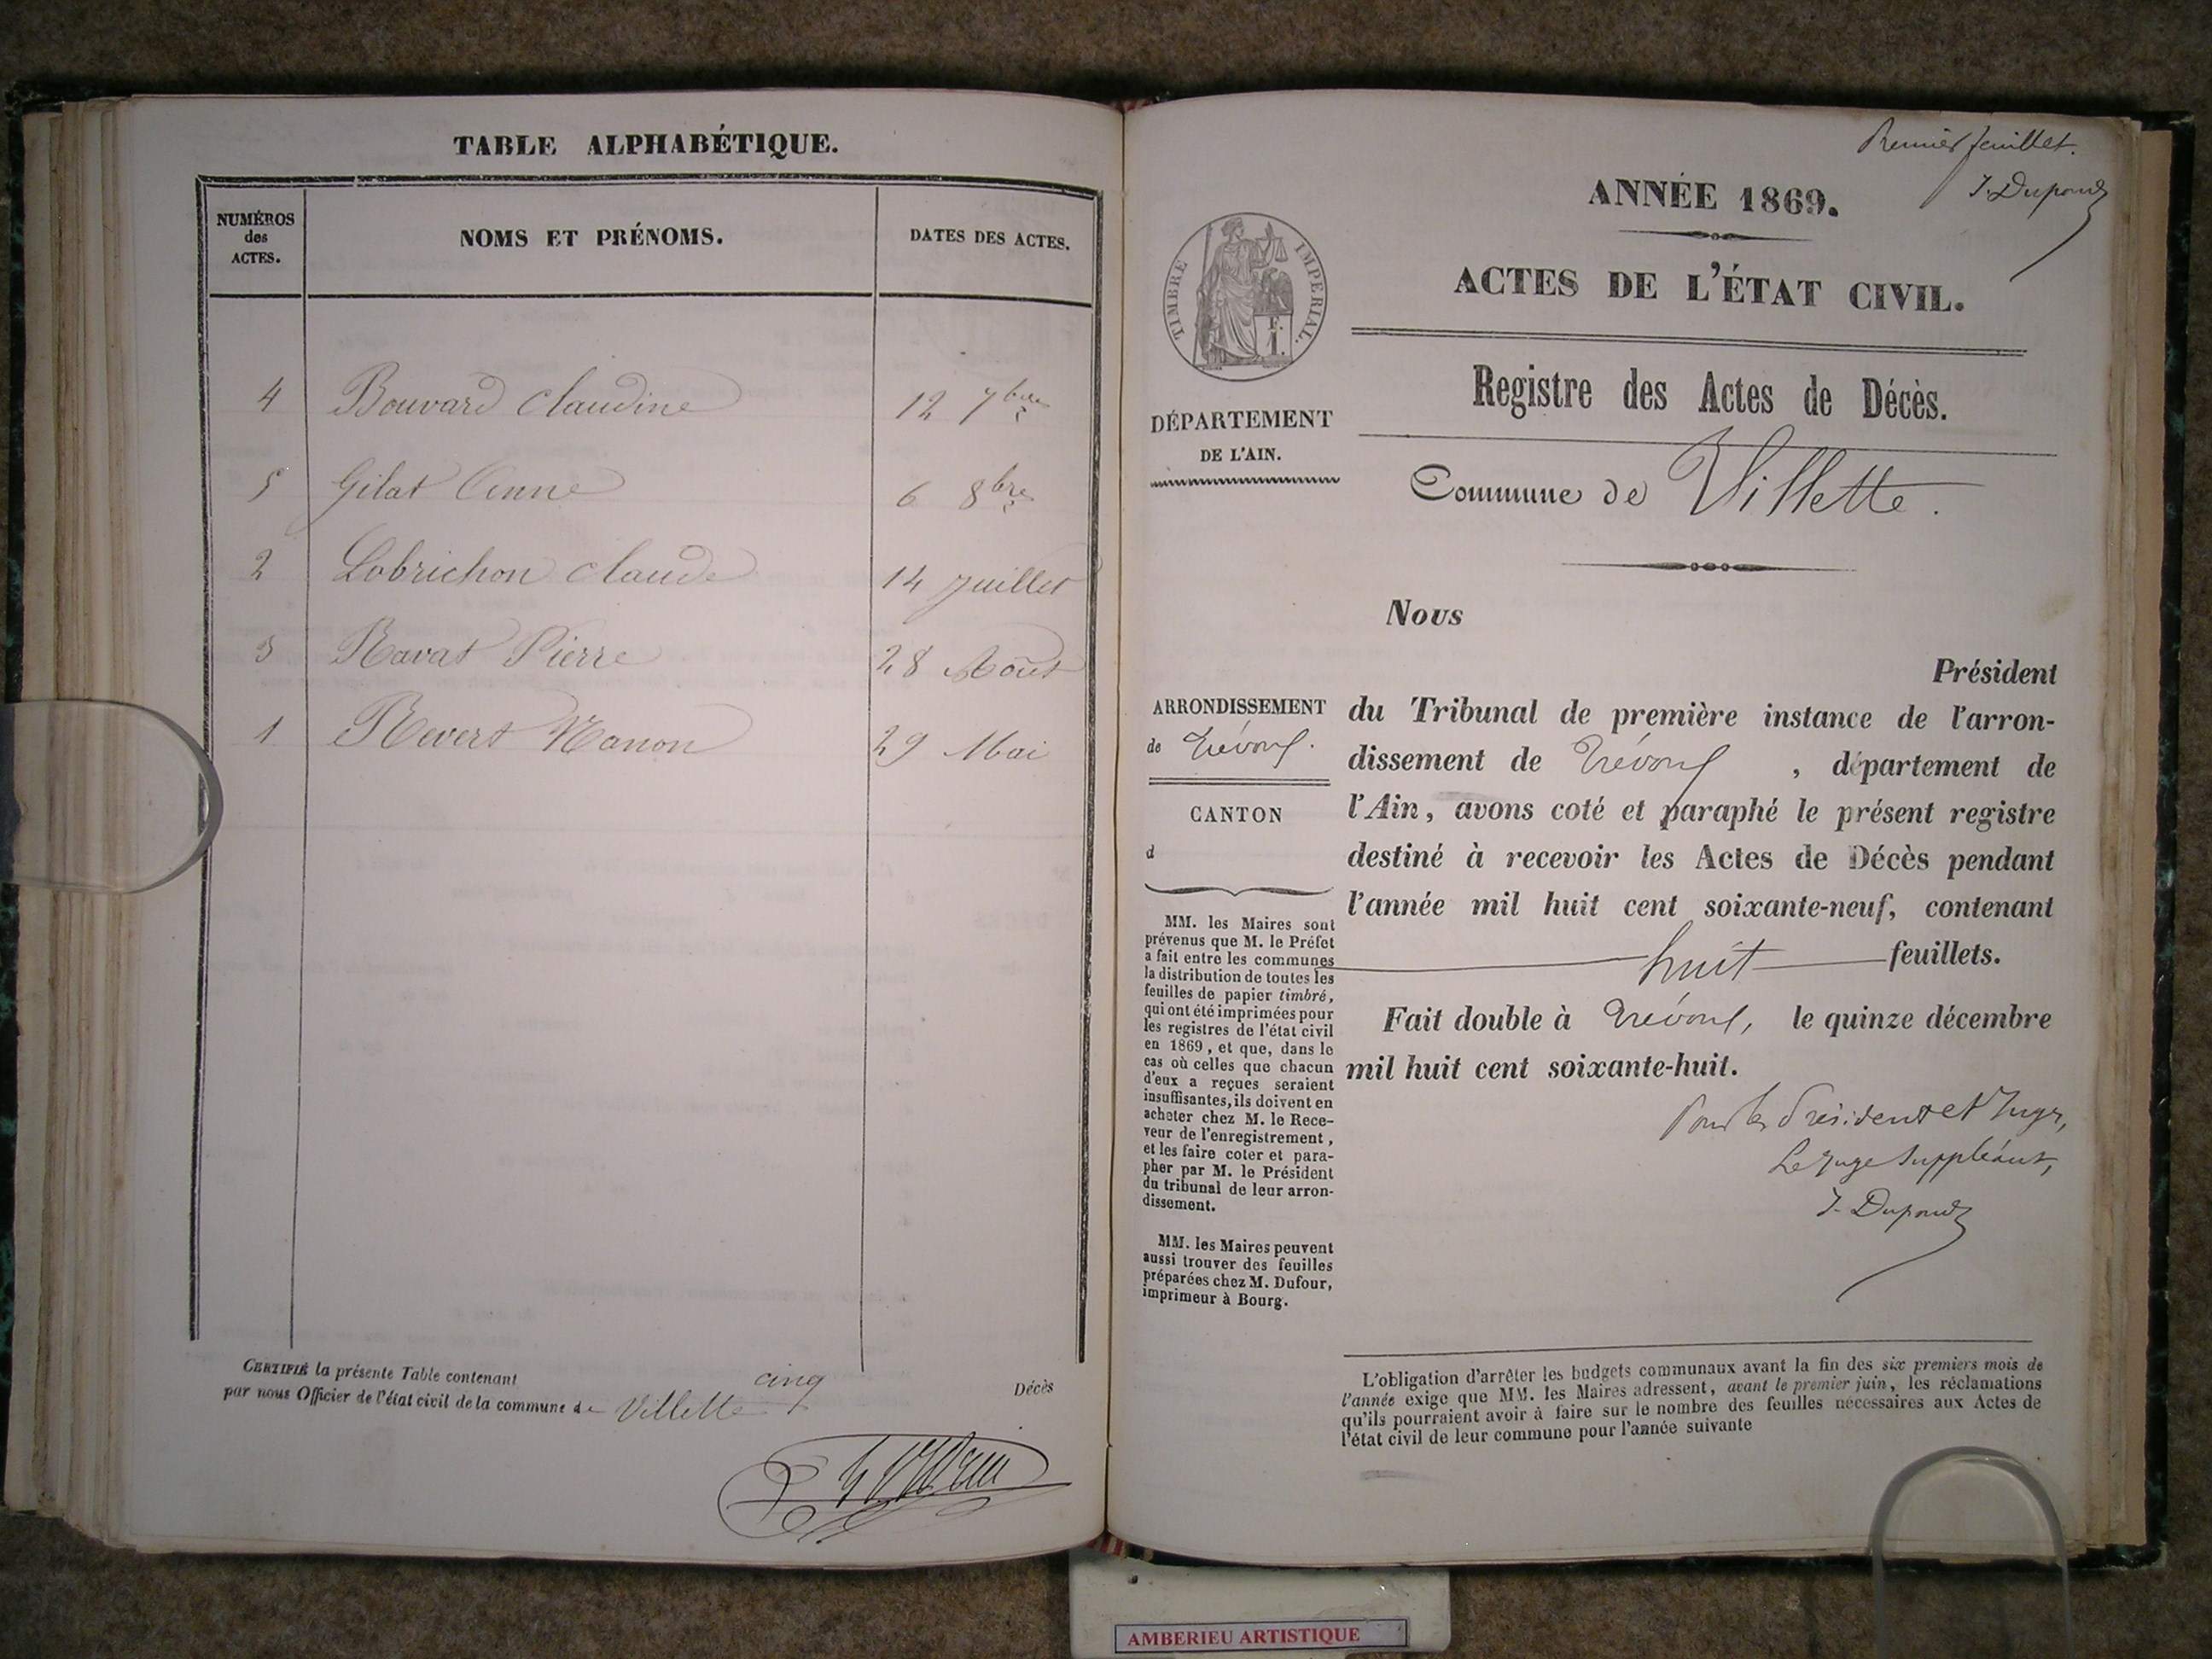 TABLE ALPHABÉTIQUE.
NUMÉROS
des
ACTES.
NOMS ET PRÉNOMS.
DATES DES ACTES.
4 Bouvard Claudine 12 7bre
5 Gilat Anne 6 8bre
2 Lobrichon Claude 14 Juillet
3 Ravat Pierre 28 Août
1 Revert Manon 29 Mai
CERTIFIÉ la présente Table contenant cinq Décès
par nous Officier de l'état civil de la commune de Villette
Premier feuillet.
J. Dupond
ANNÉE 1869.
ACTES DE L'ÉTAT CIVIL.
TIMBRE IMPERIAL.
Registre des Actes de Décès.
DÉPARTEMENT
DE L'AIN.
Commune de Villette.
Nous
Président
du Tribunal de première instance de l'arron-
dissement de Trévoux, département de
l'Ain, avons coté et paraphé le présent registre
destiné à recevoir les Actes de Décès pendant
l'année mil huit cent soixante-neuf, contenant
huit feuillets.
Fait double à Trévoux, le quinze décembre
mil huit cent soixante-huit.
Pour les Président et Juges,
Le Juge Suppléant,
J. Dupond
ARRONDISSEMENT
de Trévoux.
CANTON
d
MM. les Maires sont
prévenus que M. le Préfet
a fait entre les communes
la distribution de toutes les
feuilles de papier timbré,
qui ont été imprimées pour
les registres de l'état civil
en 1869, et que, dans le
cas où celles que chacun
d'eux a reçues seraient
insuffisantes, ils doivent en
acheter chez M. le Rece-
veur de l'enregistrement,
et les faire coter et para-
pher par M. le Président
du tribunal de leur arron-
dissement.
MM. les Maires peuvent
aussi trouver des feuilles
préparées chez M. Dufour,
imprimeur à Bourg.
L'obligation d'arrêter les budgets communaux avant la fin des six premiers mois de
l'année exige que MM. les Maires adressent, avant le premier juin, les réclamations
qu'ils pourraient avoir à faire sur le nombre des feuilles nécessaires aux Actes de
l'état civil de leur commune pour l'année suivante
AMBERIEU ARTISTIQUE